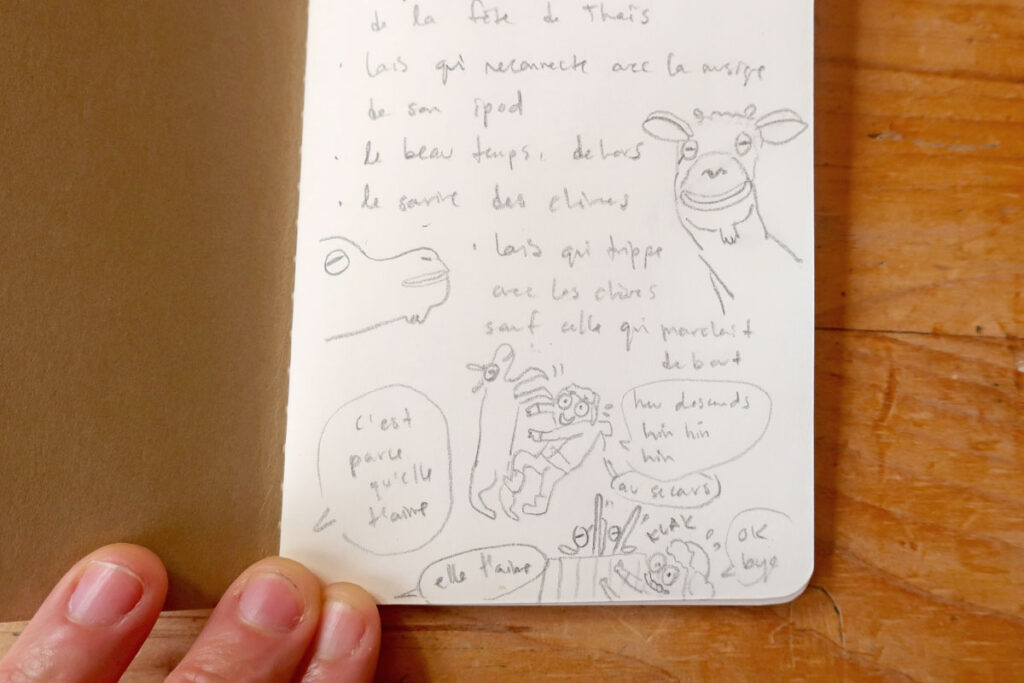 de la fête de Thaïs
· Laïs qui reconnecte avec la musique
de son ipod
· le beau temps, dehors
· le sourire des chèvres
· Laïs qui trippe
avec les chèvres
sauf celle qui marchait
debout
c'est
parce
qu'elle
t'aime
heu descends
hin hin
hin
au secours
KLAK
OK
bye
elle t'aime